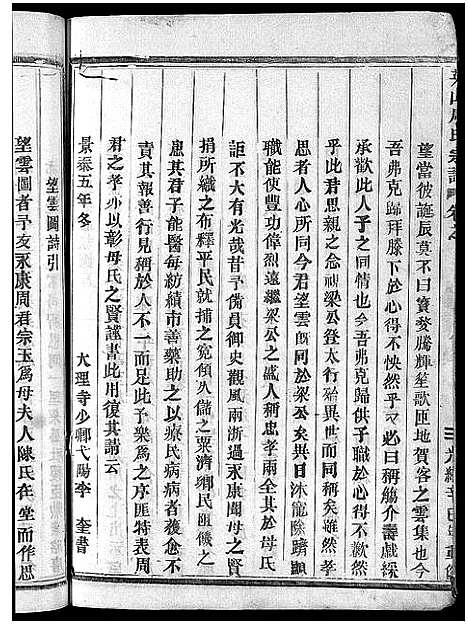 望當彼誕辰莫不曰寶婺騰輝笙歌匝地賀客之雲集也今
吾弗克歸拜膝下於心得不怏然乎必曰稱觴介壽戲綵
承歡此人子之同情也今吾弗克歸供子職於心得不歉然
乎此君思親之念視梁公登太行所稱矣雖然孝
思者人心所同今君望雲既同於梁公矣異日沐龍除躋顯
職能使功業烜赫遠繼梁公之盛人稱忠孝兩全其於母氏
詎不大有光哉昔予備員御史觀風兩浙過永康聞周母氏
捐所織之布釋平民就捕之冤傾久儲之粟濟鄉民阻饑之
患其君子能醫每紡績市善藥助之以療民病者後愈不
責其報善行見稱於人不一而足此予樂為之序匪特表周
君之孝亦以彰母氏之賢謹書此用復其請云
景泰五年冬 大理寺少卿弋陽李 奎書
望雲圖詩引
望雲圖者予友永康周君宗玉為母夫人陳氏在堂而作思